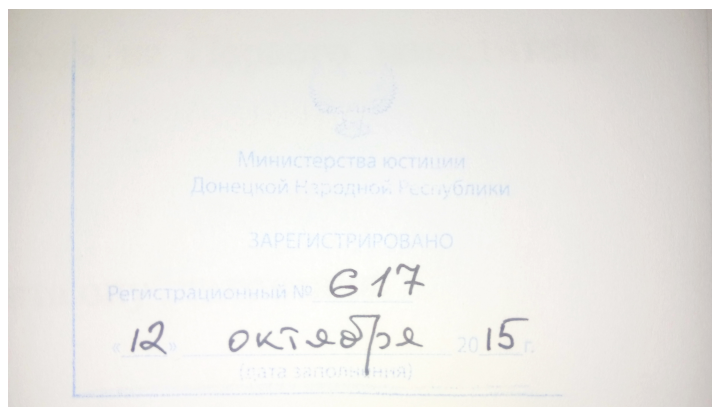 Министерства юстиции
Донецкой Народной Республики
ЗАРЕГИСТРИРОВАНО
Регистрационный № 617
«12» октября 2015 г.
(дата заполнения)